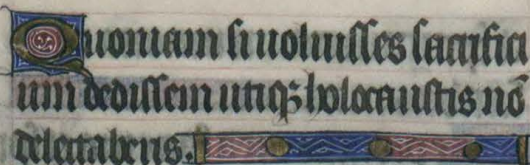 Quoniam si uoluisses sacrifici
um dedissem utiqꝫ holocaustis nō
delectaberis.